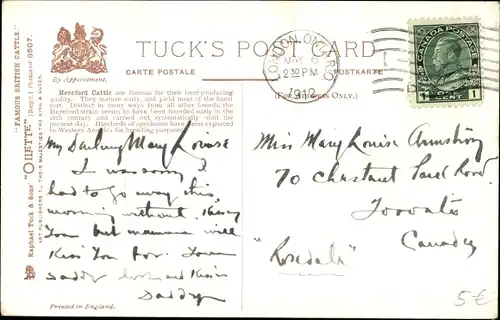 TUCK'S POST CARD
CARTE POSTALE
POSTKARTE
By Appointment.
(For Address Only.)
Hereford Cattle are famous for their beef-producing
quality. They mature early, and yield meat of the finest
sort. Distinct in many ways from all other breeds, the
Hereford strain seems to have been founded early in the
18th century and carried out systematically until the
present day. Hundreds of specimens have been exported
to Western America for breeding purposes.
Raphael Tuck & Sons' "OILETTE" "FAMOUS BRITISH CATTLE."
ART PUBLISHERS TO THEIR MAJESTIES THE KING & QUEEN.
Postcard 9507.
LONDON, ONTARIO
MAY
2 30 PM
CANADA POSTAGE
1 CENT 1
My Darling Mary Louise
I was sorry I
had to go away this
morning without kissing
You but mamma will
Kiss You for Your
Daddy love and Kiss
Daddy
Miss Mary Louise Armstrong
70 Chestnut Park Road
Toronto
Canada
"Rosedale"
Printed in England.
5€